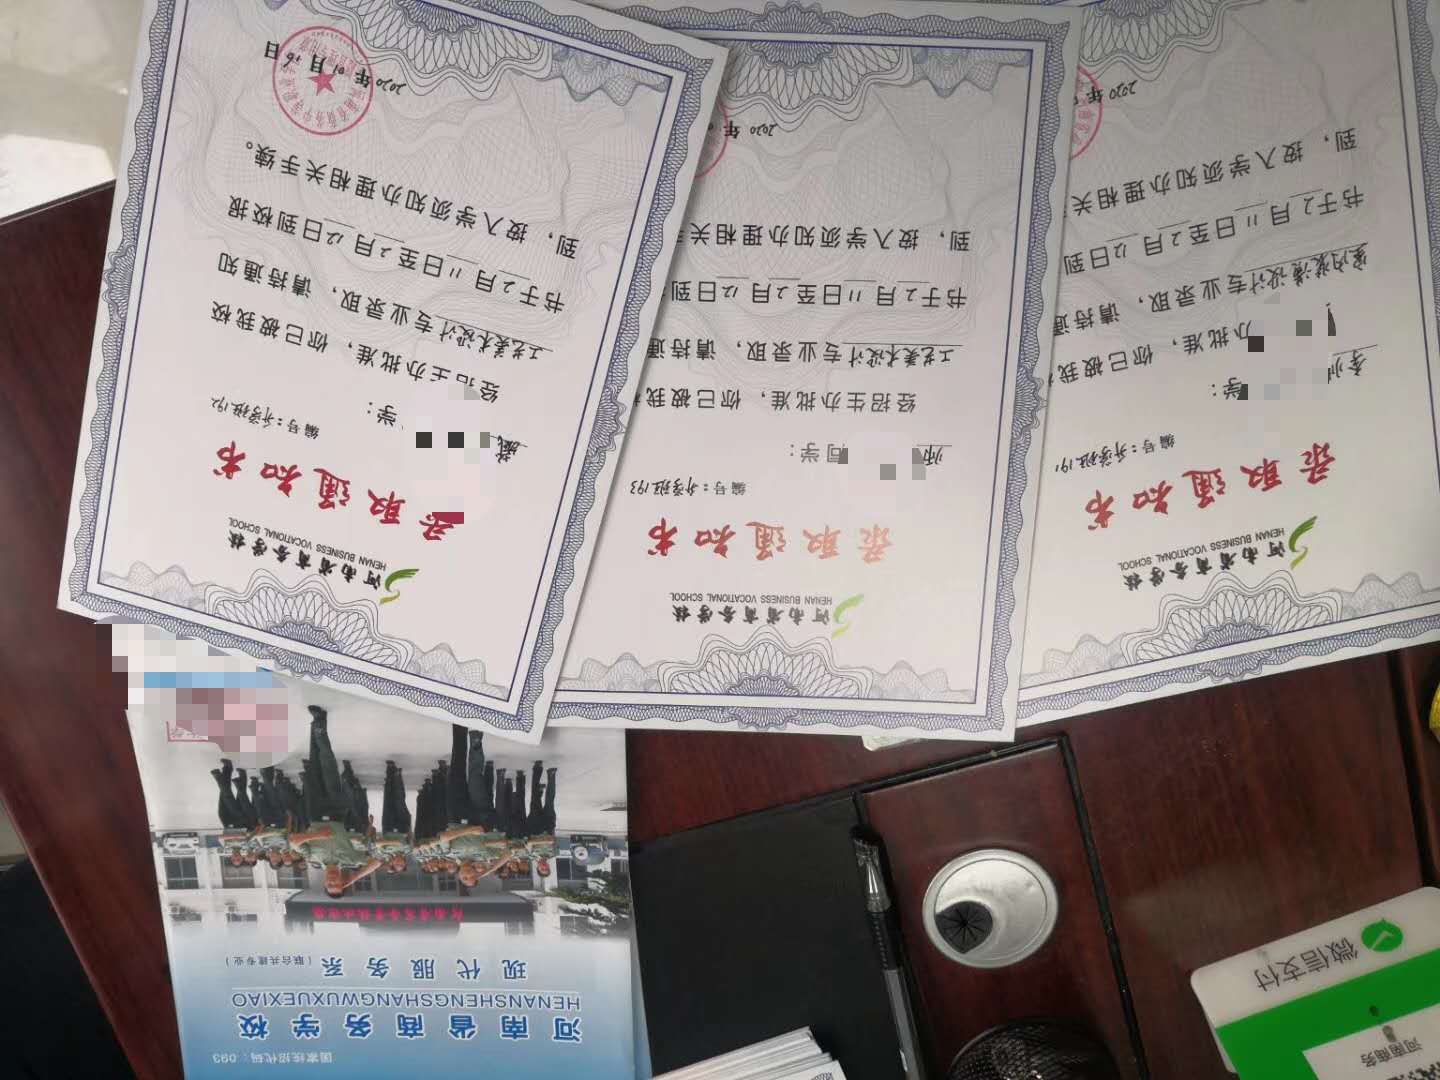 河南省商务学校
HENAN BUSINESS VOCATIONAL SCHOOL
录取通知书
编号：升学班192
学：
经招生办批准，你已被我校
工艺美术设计专业录取，请持通知
书于2月11日至2月12日到校报
到，按入学须知办理相关手续。
2020年01月16日
河南省商务学校
HENAN BUSINESS VOCATIONAL SCHOOL
录取通知书
编号：升学班193
师 同学：
经招生办批准，你已被我
工艺美术设计专业录取，请持通
书于2月11日至2月12日到
到，按入学须知办理相关
2020年
河南省商务学校
HENAN BUSINESS VOCATIONAL SCHOOL
录取通知书
编号：升学班191
李帅 学：
办批准，你已被我
室内装潢设计专业录取，请持通
书于2月11日至2月12日到
到，按入学须知办理相关
2020年
国家统招代码：093
河南省商务学校
HENANSHENGSHANGWUXUEXIAO
现代服务系（联合共建专业）
微信支付
河南商务